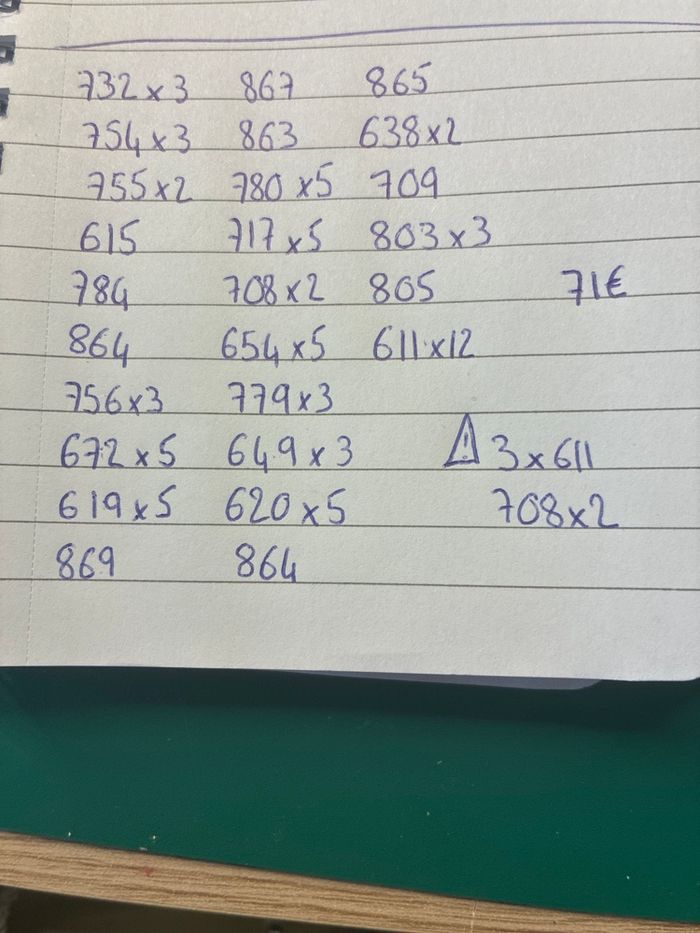 732 x 3 867 865
754 x 3 863 638 x 2
755 x 2 780 x 5 709
615 717 x 5 803 x 3
784 708 x 2 805 71€
864 654 x 5 611 x 12
756 x 3 779 x 3
672 x 5 649 x 3 ⚠ 3 x 611
619 x 5 620 x 5 708 x 2
869 864